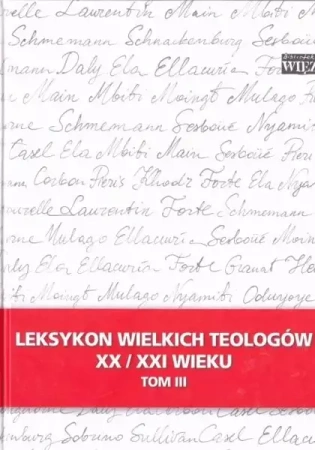 Laurentin Main Mbiti
Schmemann Schnackenburg Sesboüé
Daly Ela Ellacuría Forte
BIBLIOTEKA
WIĘŹ
Main Mbiti Moingt Mulago
Schmemann Sesboüé Nyamiti
Casel Ela Mbiti Main Sesboüé
Corbon Pieris Khodr Forte Ela
Laurentin Forte Schmemann
Mulago Ellacuría Sesboüé Moingt
Daly Ela Ellacuría Forte
Moingt Mulago Nyamiti Oduyoye
LEKSYKON WIELKICH TEOLOGÓW
XX / XXI WIEKU
TOM III
Sobrino Sullivan Casel Ela